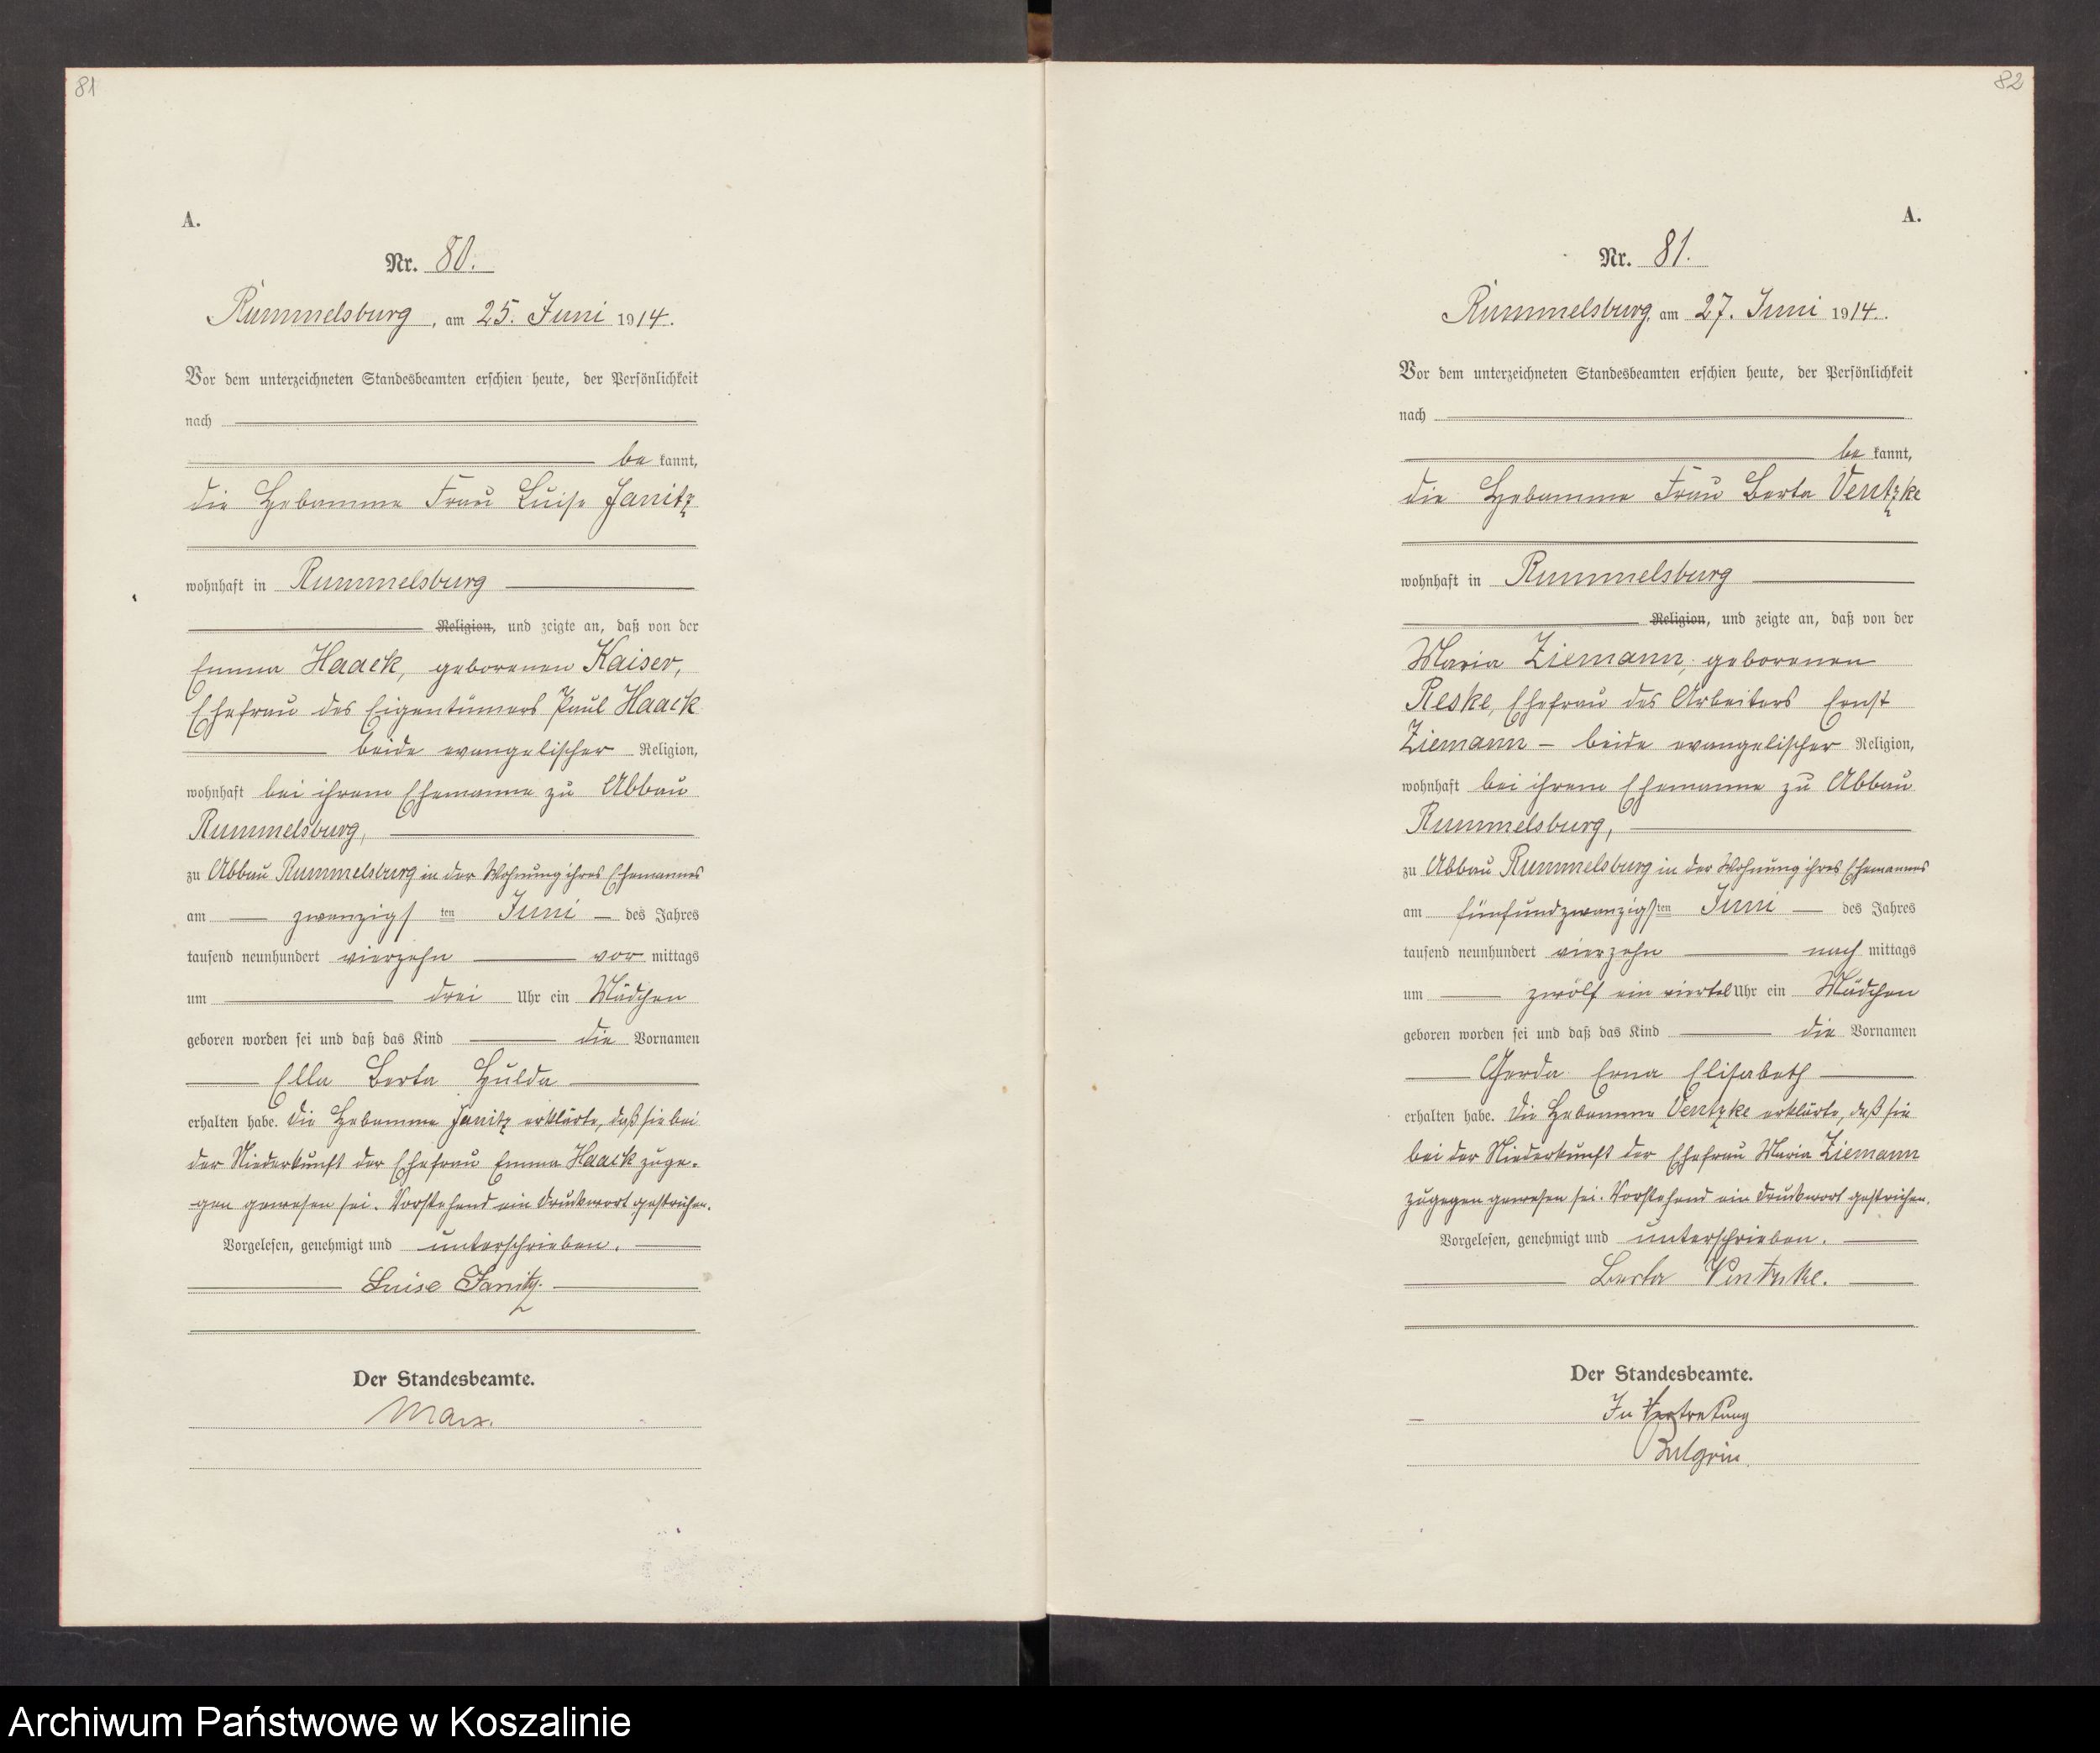 81
A.
Nr. 80.
Rummelsburg, am 25. Juni 1914.
Vor dem unterzeichneten Standesbeamten erschien heute, der Persönlichkeit
nach
be kannt,
die Hebamme Frau Luise Janitz
wohnhaft in Rummelsburg
Religion, und zeigte an, daß von der
Emma Haack, geborenen Kaiser,
Ehefrau des Eigentümers Paul Haack
beide evangelischer Religion,
wohnhaft bei ihrem Ehemanne zu Abbau
Rummelsburg,
zu Abbau Rummelsburg in der Wohnung ihres Ehemannes
am zwanzigsten Juni des Jahres
tausend neunhundert vierzehn vor mittags
um drei Uhr ein Mädchen
geboren worden sei und daß das Kind die Vornamen
Ella Berta Hulda
erhalten habe. Die Hebamme Janitz erklärte, daß sie bei
der Niederkunft der Ehefrau Emma Haack zuge-
gen gewesen sei. Vorstehend ein Druckwort gestrichen.
Vorgelesen, genehmigt und unterschrieben.
Luise Janitz.
Der Standesbeamte.
Marx.
82
A.
Nr. 81.
Rummelsburg, am 27. Juni 1914.
Vor dem unterzeichneten Standesbeamten erschien heute, der Persönlichkeit
nach
be kannt,
die Hebamme Frau Berta Ventzke
wohnhaft in Rummelsburg
Religion, und zeigte an, daß von der
Maria Ziemann, geborenen
Reske, Ehefrau des Arbeiters Ernst
Ziemann – beide evangelischer Religion,
wohnhaft bei ihrem Ehemanne zu Abbau
Rummelsburg,
zu Abbau Rummelsburg in der Wohnung ihres Ehemannes
am fünfundzwanzigsten Juni des Jahres
tausend neunhundert vierzehn nach mittags
um zwölf ein viertel Uhr ein Mädchen
geboren worden sei und daß das Kind die Vornamen
Gerda Erna Elisabeth
erhalten habe. Die Hebamme Ventzke erklärte, daß sie
bei der Niederkunft der Ehefrau Maria Ziemann
zugegen gewesen sei. Vorstehend ein Druckwort gestrichen.
Vorgelesen, genehmigt und unterschrieben.
Berta Ventzke.
Der Standesbeamte.
In Vertretung
Archiwum Państwowe w Koszalinie